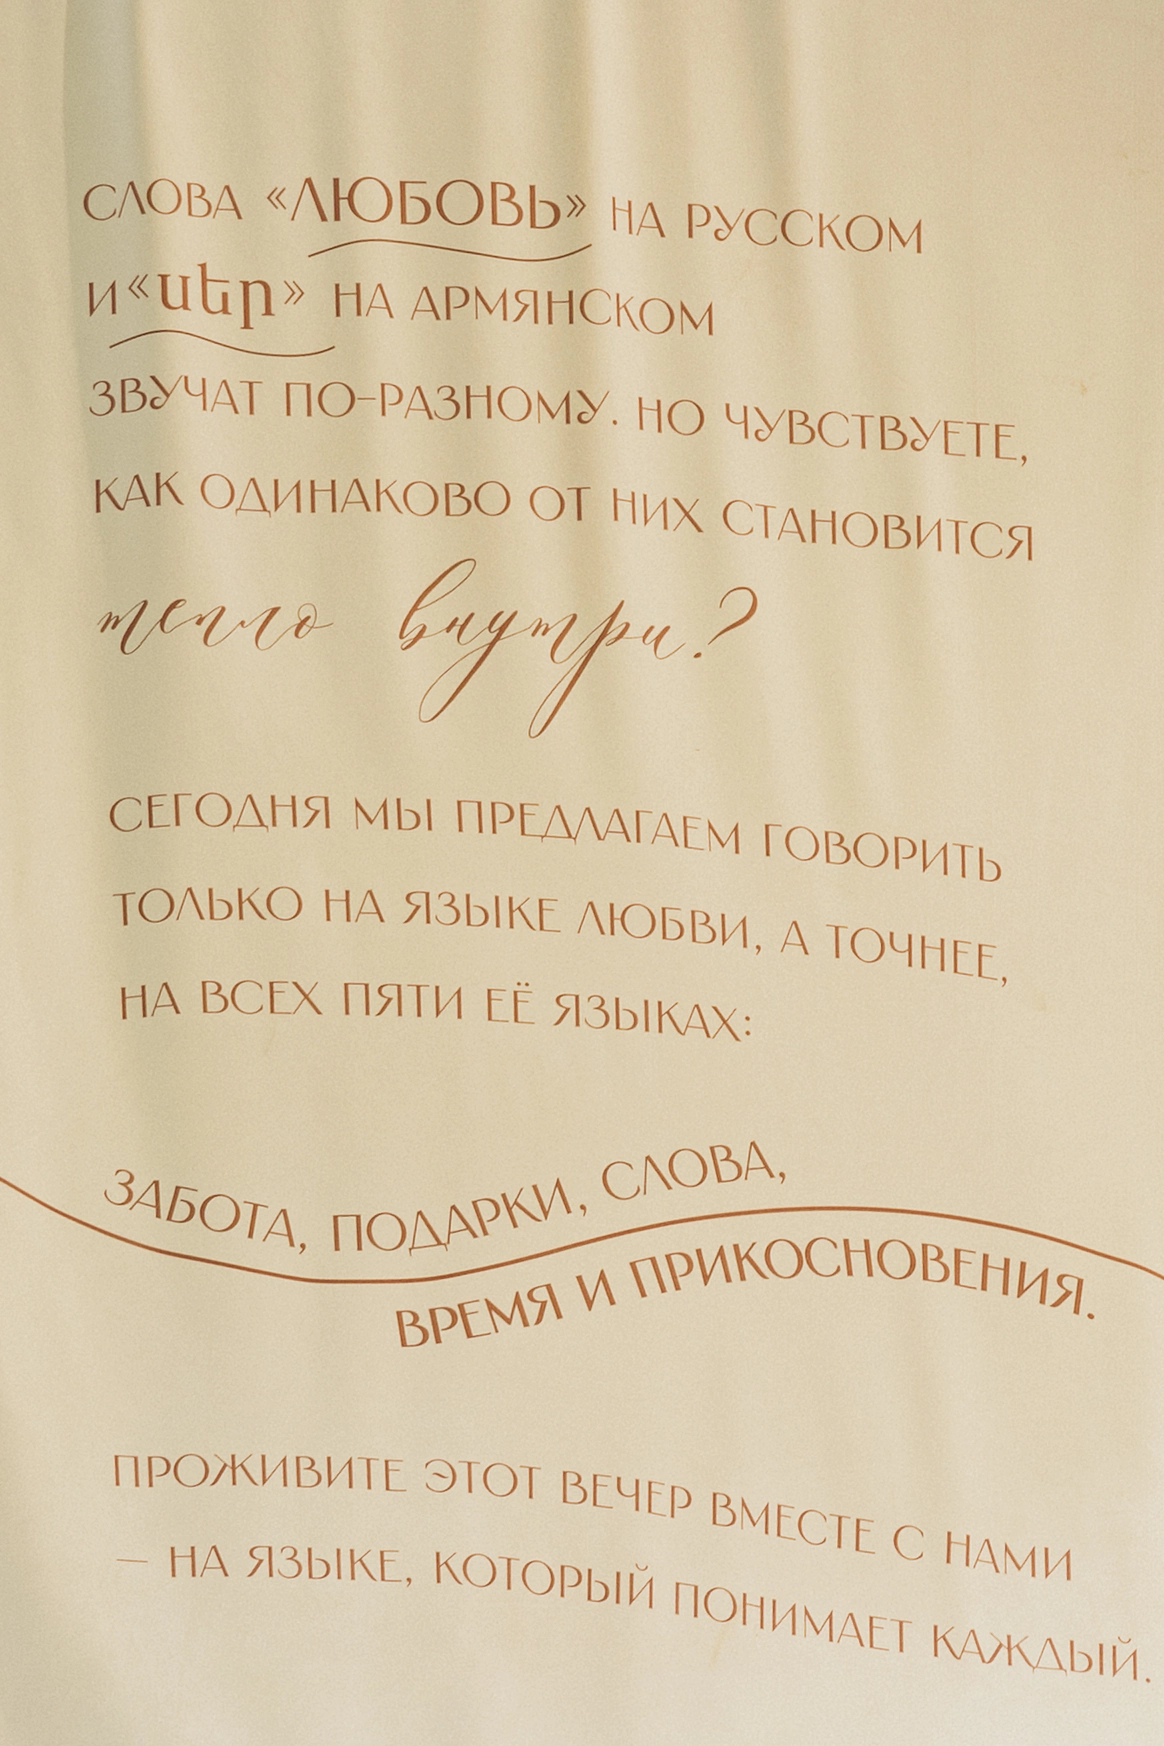 СЛОВА «ЛЮБОВЬ» НА РУССКОМ
И «սեր» НА АРМЯНСКОМ
ЗВУЧАТ ПО-РАЗНОМУ. НО ЧУВСТВУЕТЕ,
КАК ОДИНАКОВО ОТ НИХ СТАНОВИТСЯ
тепло внутри?
СЕГОДНЯ МЫ ПРЕДЛАГАЕМ ГОВОРИТЬ
ТОЛЬКО НА ЯЗЫКЕ ЛЮБВИ, А ТОЧНЕЕ,
НА ВСЕХ ПЯТИ ЕЁ ЯЗЫКАХ:
ЗАБОТА, ПОДАРКИ, СЛОВА,
ВРЕМЯ И ПРИКОСНОВЕНИЯ.
ПРОЖИВИТЕ ЭТОТ ВЕЧЕР ВМЕСТЕ С НАМИ
— НА ЯЗЫКЕ, КОТОРЫЙ ПОНИМАЕТ КАЖДЫЙ.